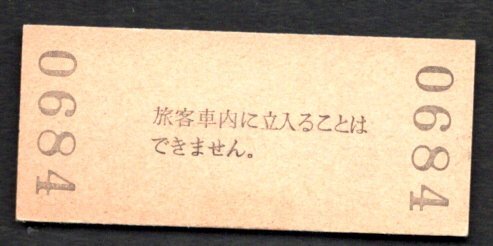 0684
旅客車内に立入ることは
できません。
0684